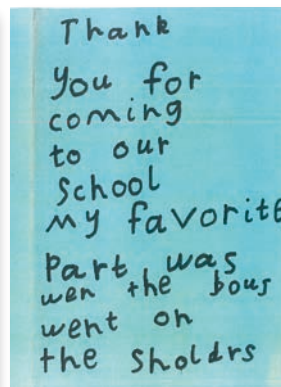 Thank
you for
coming
to our
School
my favorite
Part was
wen the bous
went on
the Sholdrs